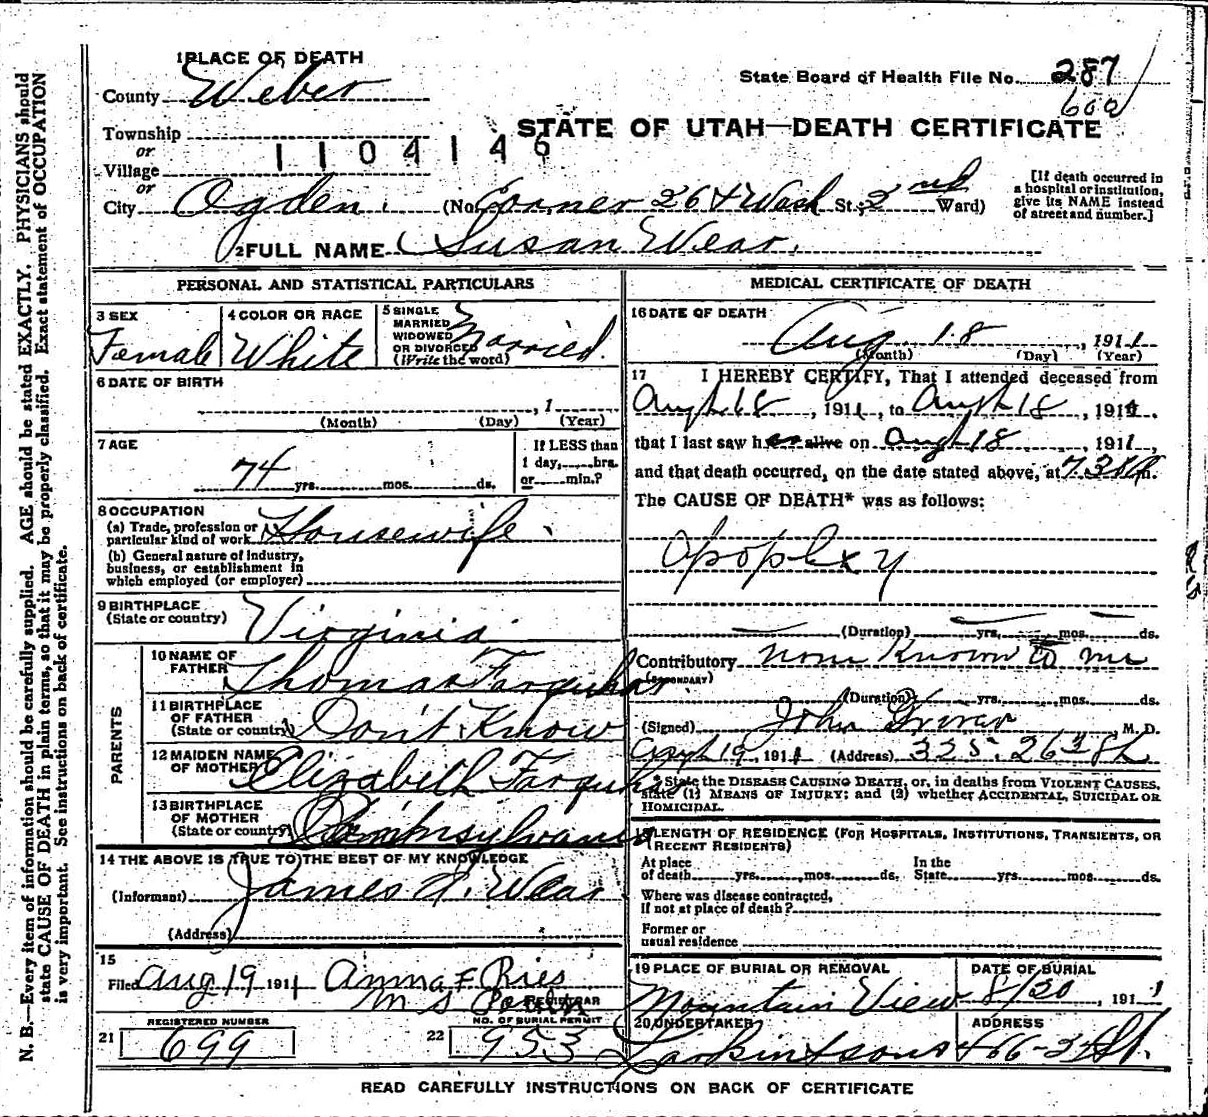 1 PLACE OF DEATH
County Weber
State Board of Health File No. 287
Township
or
Village
1104146
STATE OF UTAH—DEATH CERTIFICATE
or
City Ogden. (No. Corner 26 & Wash St.; 2nd Ward)
[If death occurred in a hospital or institution, give its NAME instead of street and number.]
2 FULL NAME Susan Wear.
PERSONAL AND STATISTICAL PARTICULARS
3 SEX
Female
4 COLOR OR RACE
White
5 SINGLE MARRIED WIDOWED OR DIVORCED (Write the word)
Married.
6 DATE OF BIRTH
, 1
(Month) (Day) (Year)
7 AGE
74 yrs. mos. ds.
If LESS than 1 day, hrs. or min.?
8 OCCUPATION
(a) Trade, profession or particular kind of work Housewife.
(b) General nature of industry, business, or establishment in which employed (or employer)
9 BIRTHPLACE
(State or country) Virginia.
PARENTS
10 NAME OF FATHER Thomas Farquhar
11 BIRTHPLACE OF FATHER (State or country) Don't Know
12 MAIDEN NAME OF MOTHER Elizabeth Farquhar
13 BIRTHPLACE OF MOTHER (State or country) Pennsylvania
14 THE ABOVE IS TRUE TO THE BEST OF MY KNOWLEDGE
(Informant) James A. Wear
(Address)
15
Filed Aug 19 1911 Anna F Ries
REGISTRAR
REGISTERED NUMBER
21 699
NO. OF BURIAL PERMIT
22 953
MEDICAL CERTIFICATE OF DEATH
16 DATE OF DEATH
Aug 18, 1911
(Month) (Day) (Year)
17 I HEREBY CERTIFY, That I attended deceased from
Augh 18, 1911, to Augh 18, 1911.
that I last saw her alive on Augh 18, 1911,
and that death occurred, on the date stated above, at 7.30 m.
The CAUSE OF DEATH* was as follows:
Apoplexy
(Duration) yrs. mos. ds.
Contributory None Known to me
(SECONDARY)
(Duration) yrs. mos. ds.
(Signed) John Driver M. D.
Augh 19, 1911 (Address) 325. 26 St
* State the DISEASE CAUSING DEATH, or, in deaths from VIOLENT CAUSES, state (1) MEANS OF INJURY; and (2) whether ACCIDENTAL, SUICIDAL OR HOMICIDAL.
18 LENGTH OF RESIDENCE (FOR HOSPITALS, INSTITUTIONS, TRANSIENTS, OR RECENT RESIDENTS)
At place of death yrs. mos. ds. In the State yrs. mos. ds.
Where was disease contracted, if not at place of death?
Former or usual residence
19 PLACE OF BURIAL OR REMOVAL
Mountain View
DATE OF BURIAL
8/20, 1911
20 UNDERTAKER
Larkin & sons
ADDRESS
466-24 St.
READ CAREFULLY INSTRUCTIONS ON BACK OF CERTIFICATE
N. B.—Every item of information should be carefully supplied. AGE should be stated EXACTLY. PHYSICIANS should
state CAUSE OF DEATH in plain terms, so that it may be properly classified. Exact statement of OCCUPATION
is very important. See instructions on back of certificate.